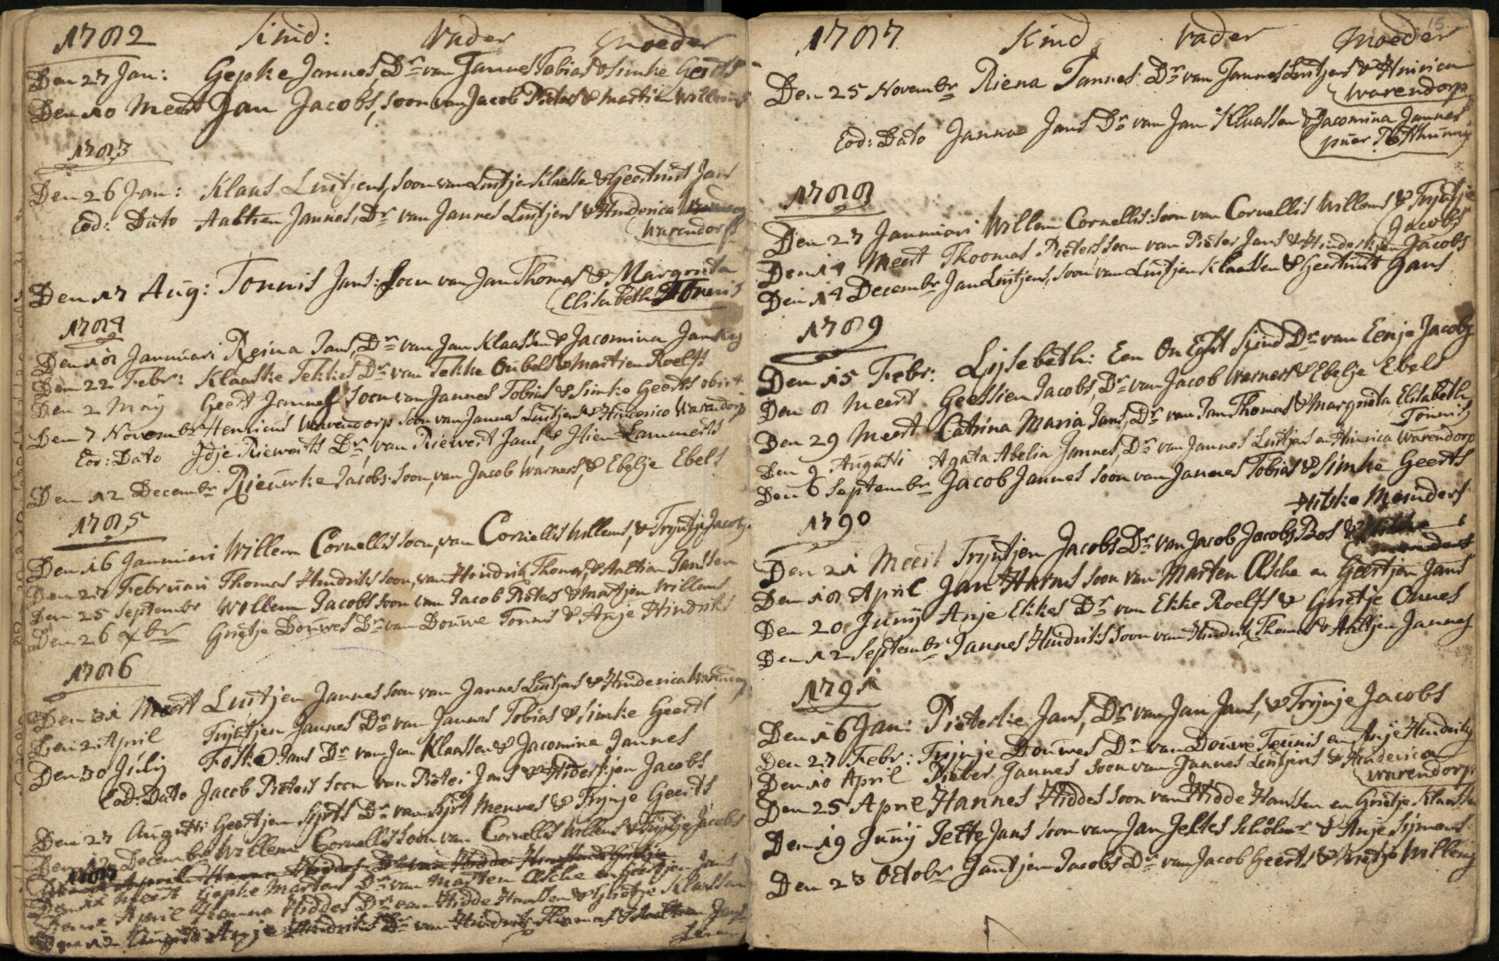 1782 Kind: Vader Moeder
Den 27 Jan: Gepke Jannes, Dr van Jannes Tobias & Simke Geerts
Den 10 Meert Jan Jacobs, soon van Jacob Pieters & Martje Willems
1783
Den 26 Jan: Klaas Luitjens, soon van Luitjen Klaassen & Geertruit Jans
Eod: Dato Aaltien Jannes, Dr van Jannes Luitjens & Hinderica
Warendorp
Den 17 Aug: Tonnis Jans: soon van Jan Thomas & Margreta
Elisabeth Tonnis
1784
Den 18 Januari Reina Jans, Dr van Jan Klaassen & Jacomina Jannes
Den 22 Febr: Klaaske Tekkes, Dr van Tekke & Martien Roelfs
Den 2 Maij Geert Jannes, soon van Jannes Tobias & Simke Geerts obiit
Den 7 November Henricus Warendorp soon van Jannes Luitjens & Hinderica Warendorp
Eod: Dato Jdje Riewerts Dr van Riewert Jans & Hien Lammerts
Den 12 Decembr Jacobs: soon van Jacob Warners, & Ebelje Ebels
1785
Den 16 Januari Willem Cornellis soon, van Cornellis Willems, & Trijntje Jacobs
Den 27 Februari Thomas Hindriks soon, van Hindrik Thomas, & Aaltien Janssen
Den 25 Septembr Willem Jacobs soon van Jacob Pieters & Martjen Willems
Den 26 xbr Grietje Douwes Dr van Douwe Tonnis & Anje Hindriks
1786
Den 31 Meert Luitjen Jannes soon van Jannes Luitjens & Hinderica
Den 2 April Jannes Dr van Jannes Tobias & Simke Geerts
Den 30 Julij Fokke Jans Dr van Jan Klaassen & Jacomina Jannes
Eod: Dato Jacob Pieters soon van Pieter Jans & Hiderkjen Jacobs
Den 27 Augusti Geertjen Sijrts Dr van Sijrt Mennes & Trijnje Geerts
Den Decembr Willem Cornellis soon van Cornellis Willems & Trijntje Jacobs
1787
Meert Gepke Martens Dr van Marten Olscke en Geertjen Jans
April Joanna Hiddes Dr van Hidde Hanssen & Grietje Klaassen
Den 12 Augusti Anje Hindriks Dr van Hindrik Thomas & Aaltien
15
1787 Kind Vader Moeder
Den 25 Novembr Riena Jannes Dr van Jannes Luitjens & Hinrica
Warendorp
Eod: Dato Janna Jans Dr van Jan Klaassen & Jacomina Jannes
puer
1788
Den 27 Januari Willem Cornellis: soon van Cornellis Willems & Trijntje
Jacobs
Den 14 Meert Thoomas Pieters soon van Pieter Jans & Hinderkjen Jacobs
Den 14 Decembr Jan Luitjens, soon van Luitjen Klaassen & Geertruit Jans
1789
Den 15 Febr: Lijsebeth: Een On Egt Kind Dr van Eenje Jacobs
Den 8 Meert Geessien Jacobs, Dr van Jacob Warners & Ebelje Ebels
Den 29 Meert Catrina Maria Jans, Dr van Jan Thomas & Margreeta Elisabeth
Tonnis
Den 9 Augusti Agata Abelia Jannes, Dr van Jannes Luitjens en Hinrica Warendorp
Den 6 Septembr Jacob Jannes soon van Jannes Tobias & Simke Geerts
1790
Hitske Meinders
Den 21 Meert Trijntjen Jacobs Dr van Jacob Jacobs Bos &
Den 18 April Jan Harms soon van Marten Olscke en Geertjen Jans
Den 20 Junij Anje Ekkes Dr van Ekke Roelfs & Grietje Onnes
Den 12 Septembr Jannes Hindriks soon van Hindrik Thomas & Aaltjen Jannes
1791
Den 16 Jan: Pieterke Jans, Dr van Jan Jans, & Trijnje Jacobs
Den 27 Febr: Trijnje Douwes Dr van Douwe Teunis en Anje Hindriks
Den 10 April Jannes soon van Jannes Luitjens & Hinderica
Warendorp
Den 25 April Hannes Hiddes soon van Hidde Hanssen en Grietje Klaassen
Den 19 Junij Jette Jans soon van Jan Jeltes & Anje Sijmons
Den 23 Octobr Jantjen Jacobs Dr van Jacob Geerts & Willems